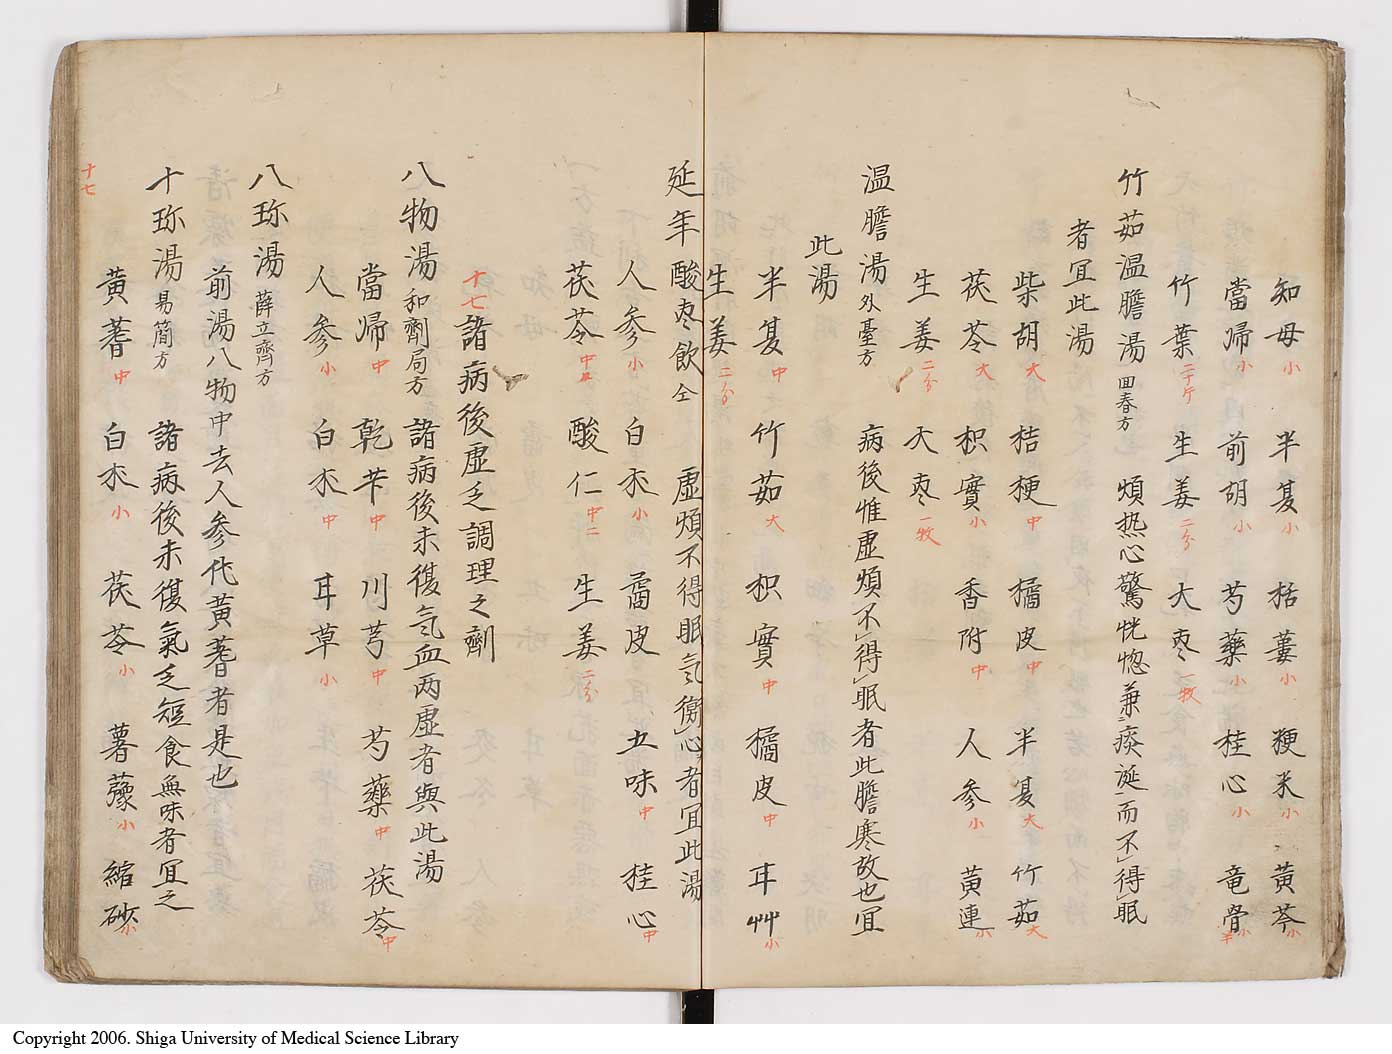 知母小 半夏小 括蔞小 粳米小 黄芩小
當帰小 前胡小 芍藥小 桂心小 竜骨小半
竹葉二十斤 生姜二分 大枣一牧
竹茹温膽湯回春方 煩热心驚恍惚兼痰涎而不得眠
者冝此湯
柴胡大 桔梗中 橘皮中 半夏大 竹茹大
茯苓大 枳實小 香附中 人参小 黄連小
生姜二分 大枣一牧
温膽湯外臺方 病後惟虚煩不得眠者此膽寒故也冝
此湯
半夏中 竹茹大 枳實中 橘皮中 耳艸小
生姜二分
延年酸枣飲仝 虚煩不得眠気衝心者冝此湯
人参小 白朮小 橘皮 五味中 桂心中
茯苓中 酸仁中二 生姜二分
十七諸病後虚乏調理之劑
八物湯和劑局方 諸病後未復気血两虚者與此湯
當帰中 乾芐中 川芎中 芍藥中 茯苓中
人参小 白朮中 耳草小
八珎湯薛立齊方
前湯八物中去人参代黄蓍者是也
十珎湯易簡方 諸病後未復氣乏短食無味者冝之
黄蓍中 白朮小 茯苓小 薯蕷小 縮砂小
十七
Copyright 2006. Shiga University of Medical Science Library